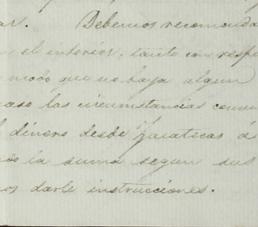 ar. Debemos recomenda
el interior, tanto con respe
modo que no haya algun
aso las circunstancias conse
l dinero desde Zacatecas á
la suma segun sus
os darle instrucciones.